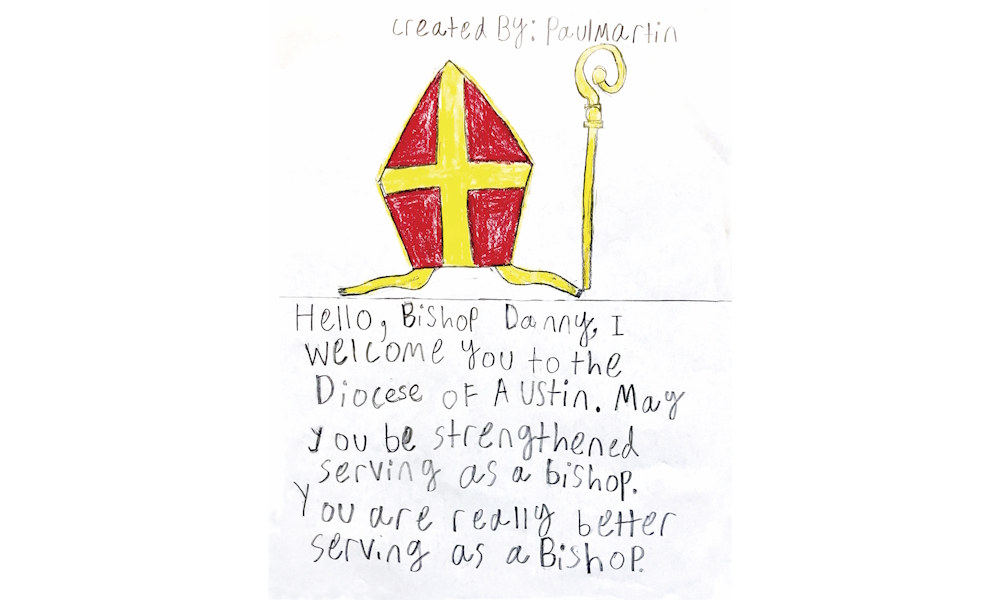 created By: PaulMartin
Hello, Bishop Danny, I
welcome you to the
Diocese of Austin. May
you be strengthened
serving as a bishop.
You are really better
serving as a Bishop.